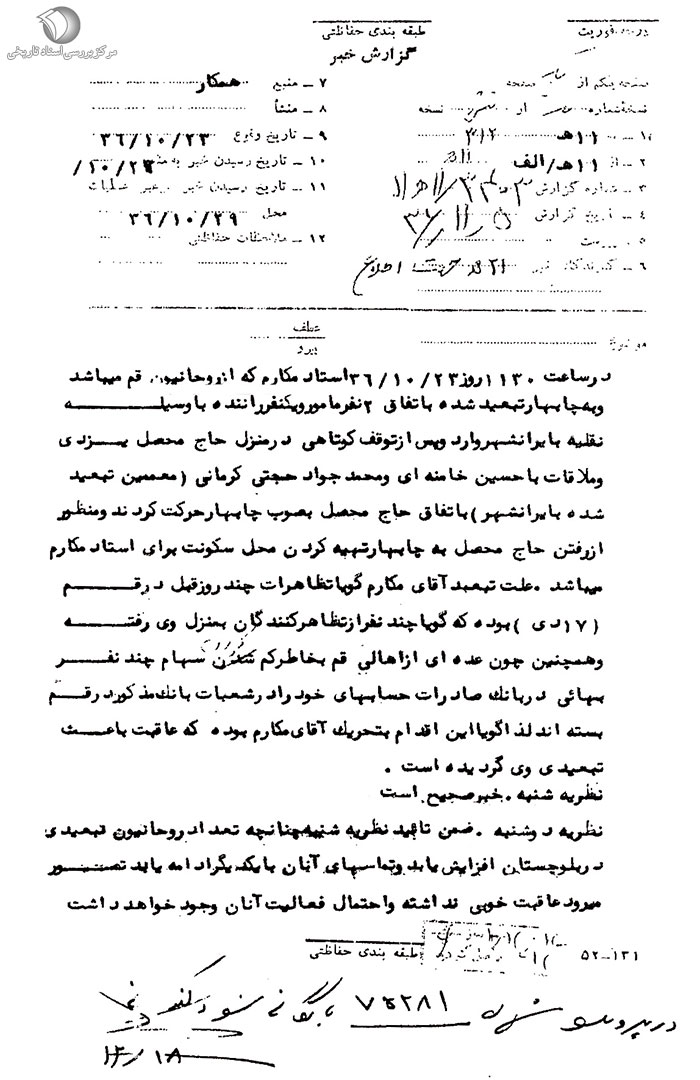 مرکز بررسی اسناد تاریخی
طبقه بندی حفاظتی
گزارش خبر
درجه فوریت
صفحه یکم از صفحه
نسخه شماره از نسخه
۱ـ به ۱۱هـ ۳۱۲
۲ـ از ۱۱هـ/الف
۳ـ شماره گزارش
۴ـ تاریخ گزارش
۵ـ پیوست
۶ـ گیرندگان خبر
۷ـ منبع همکار
۸ـ منشأ
۹ـ تاریخ وقوع ۳۶/۱۰/۲۳
۱۰ـ تاریخ رسیدن خبر به منبع /۱۰/۲۴
۱۱ـ تاریخ رسیدن خبر برهبر عملیات
محل ۳۶/۱۰/۲۹
۱۲ـ ملاحظات حفاظتی
موضوع
عطف
پیرو
درساعت ۱۱۳۰روز۳۶/۱۰/۲۳استاد مکارم که ازروحانیون قم میباشد
وبه چابهارتبعید شده باتفاق ۲نفرمامورویکنفرراننده باوسیله
نقلیه بایرانشهروارد وپس ازتوقف کوتاهی درمنزل حاج محصل یزدی
وملاقات باحسین خامنه ای ومحمد جواد حجتی کرمانی (معممین تبعید
شده بایرانشهر)باتفاق حاج محصل بصوب چابهارحرکت کردند ومنظور
ازرفتن حاج محصل به چابهارتهیه کردن محل سکونت برای استاد مکارم
میباشد .علت تبعید آقای مکارم گویاتظاهرات چند روزقبل درقم
(۱۷دی )بوده که گویاچند نفرازتظاهرکنندگان بمنزل وی رفته
وهمچنین چون عده ای ازاهالی قم بخاطرکم شدن سهام چند نفر
بهائی دربانك صادرات حسابهای خودرادرشعبات بانك مذکوردرقم
بسته اند لذاگویااین اقدام بتحریك آقای مکارم بوده که عاقبت باعث
تبعیدی وی گردیده است .
نظریه شنبه .خبرصحیح است
نظریه دوشنبه .ضمن تائید نظریه شنبه چنانچه تعداد روحانیون تبعیدی
دربلوچستان افزایش یابد وتماسهای آنان بایکدیگرادامه یابد تصور
میرود عاقبت خوبی نداشته واحتمال فعالیت آنان وجود خواهد داشت
طبقه بندی حفاظتی
۵۲ـ۱۳۱
در پرونده ۷۵۲۸۱ بایگانی شود